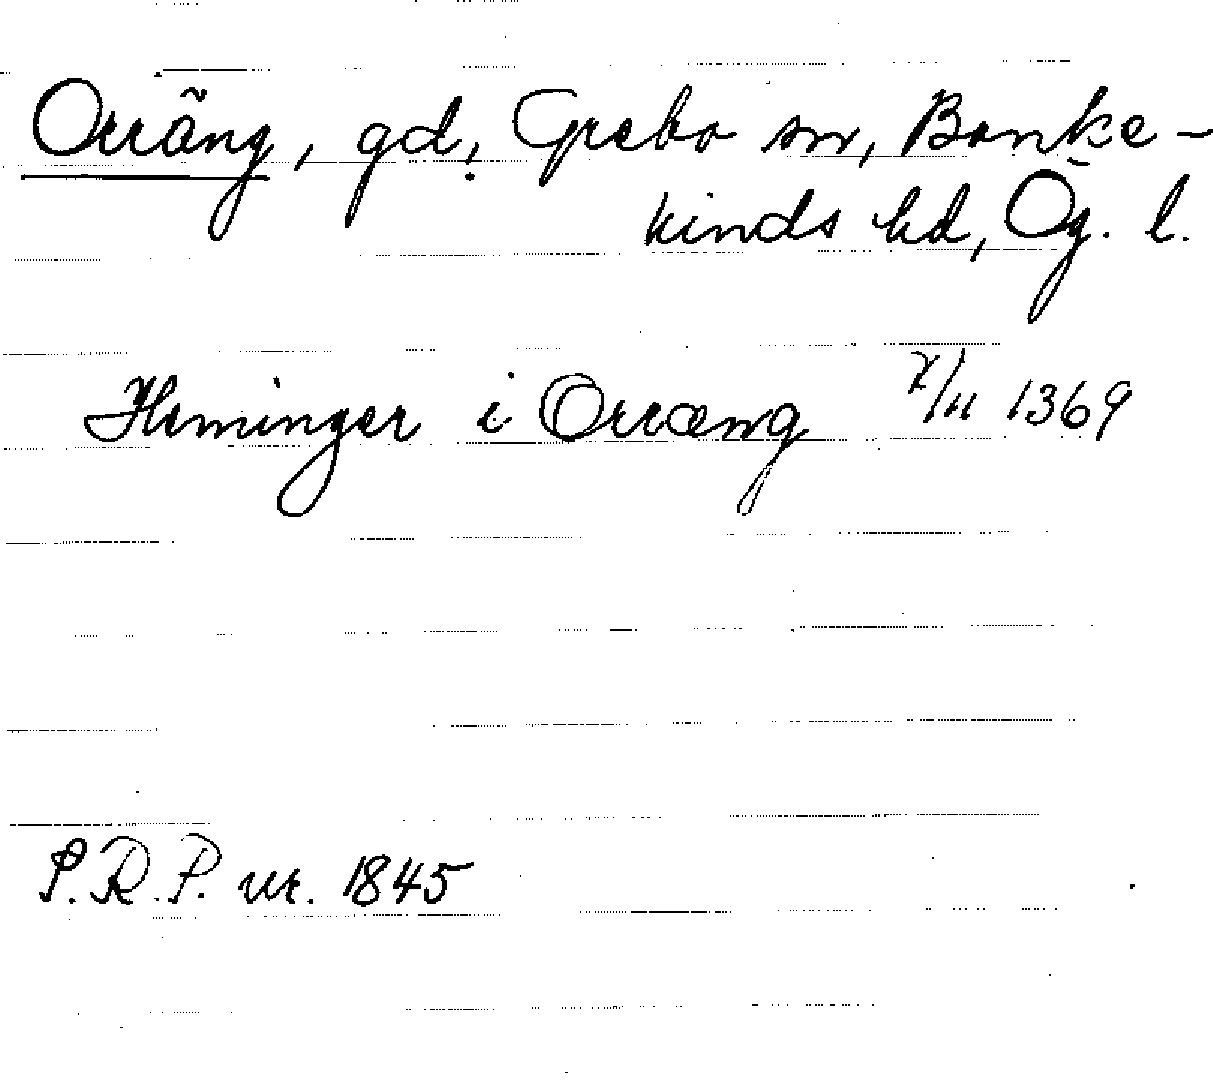 Orräng, gd, Grebo sn, Banke-
kinds hd, Ög. l.
Heminger i Orræng 7/11 1369
S.R.P. nr. 1845